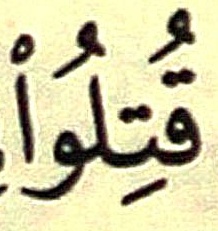 قُتِلُواْ